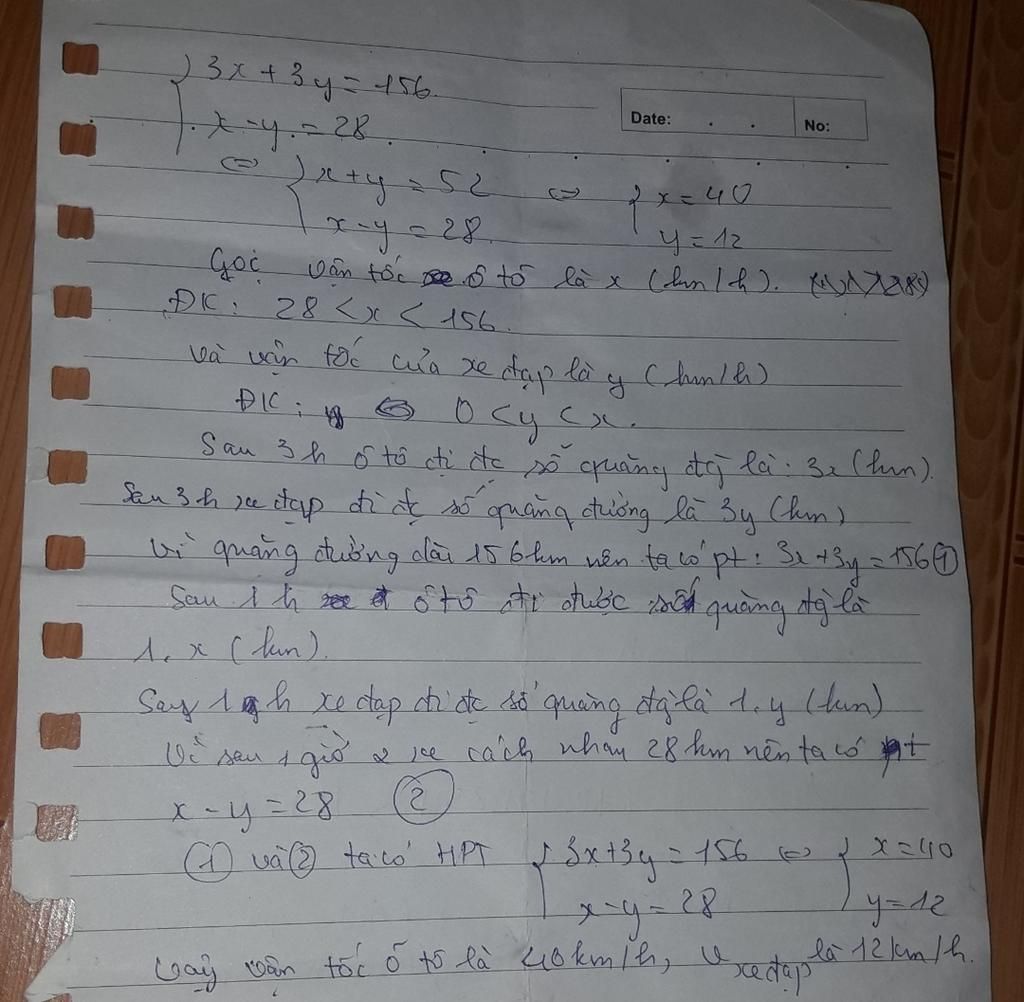 3x + 3y = 156
Date: . . No:
x - y = 28
⇔ { x + y = 52 ⇔ { x = 40
x - y = 28 y = 12
Gọi vận tốc ô tô là x (km/h).
ĐK: 28 < x < 156.
và vận tốc của xe đạp là y (km/h)
ĐK: 0 < y < x.
Sau 3h ô tô đi đc số quãng đg là: 3x (km).
Sau 3h xe đạp đi đc số quãng đường là 3y (km)
Vì quãng đường dài 156km nên ta có pt: 3x + 3y = 156 ①
Sau 1h ô tô đi được số quãng đg là
1. x (km).
Sau 1h xe đạp đi đc số quãng đg là 1. y (km)
Vì sau 1 giờ 2 xe cách nhau 28km nên ta có pt
x - y = 28 ②
① và ② ta có HPT { 3x + 3y = 156 ⇔ { x = 40
x - y = 28 y = 12
Vậy vận tốc ô tô là 40km/h, v xe đạp là 12km/h.